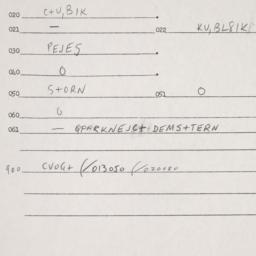 020 C+U, BIK
021 — 022 KV, BL8IK
030 PEJES
040 0
050 S+ORN 051 0
060 0
061 — GPARKNEJC+ DEMS+TERN
900 CVOG+ (/013050 (/020080